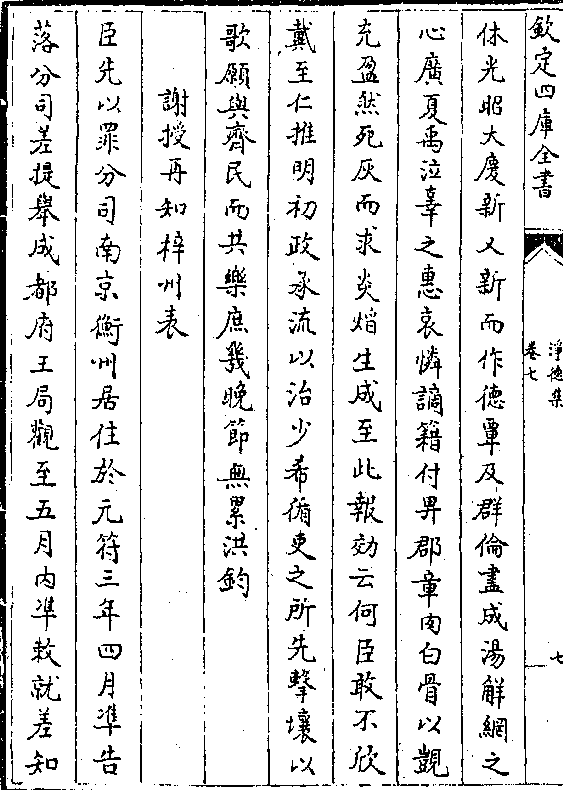 欽定四庫全書
淨德集
卷七
七
休光昭大慶新又新而作德覃及群倫盡成湯解網之
心廣夏禹泣辜之惠哀憐謫籍付畀郡章肉白骨以觀
充盈然死灰而求炎熖生成至此報効云何臣敢不欣
戴至仁推明初政承流以治少希循吏之所先擊壤以
歌願與齊民而共樂庶幾晚節無累洪鈞
謝授再知梓州表
臣先以罪分司南京衡州居住於元符三年四月凖告
落分司差提舉成都府玉局觀至五月内凖敕就差知